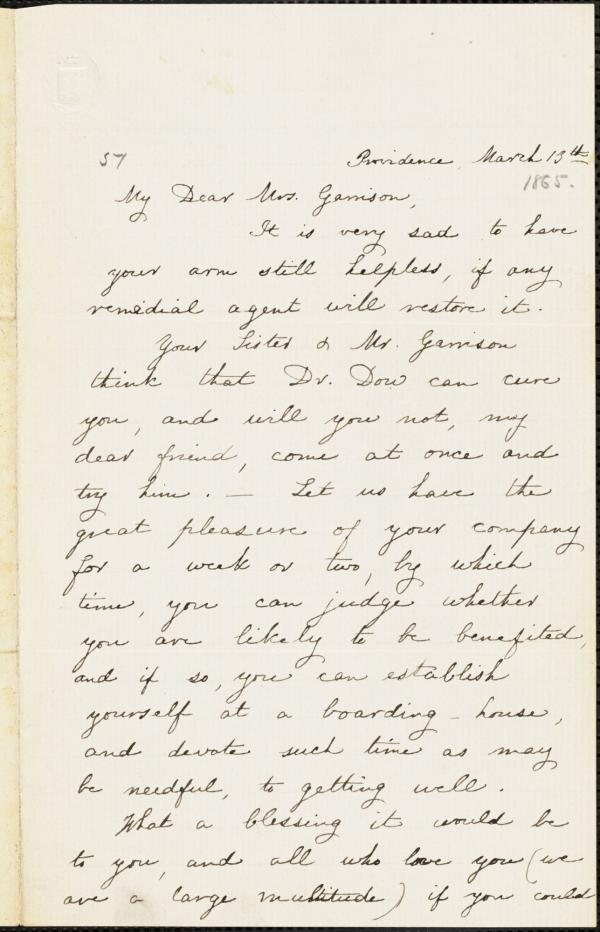 57
Providence, March 13th
1865.
My Dear Mrs. Garrison,
It is very sad to have
your arm still helpless, if any
remedial agent will restore it.
Your Sister & Mr. Garrison
think that Dr. Dow can cure
you, and will you not, my
dear friend, come at once and
try him. — Let us have the
great pleasure of your company
for a week or two, by which
time, you can judge whether
you are likely to be benefited,
and if so, you can establish
yourself at a boarding-house,
and devote such time as may
be needful, to getting well.
What a blessing it would be
to you, and all who love you (we
are a large multitude) if you could